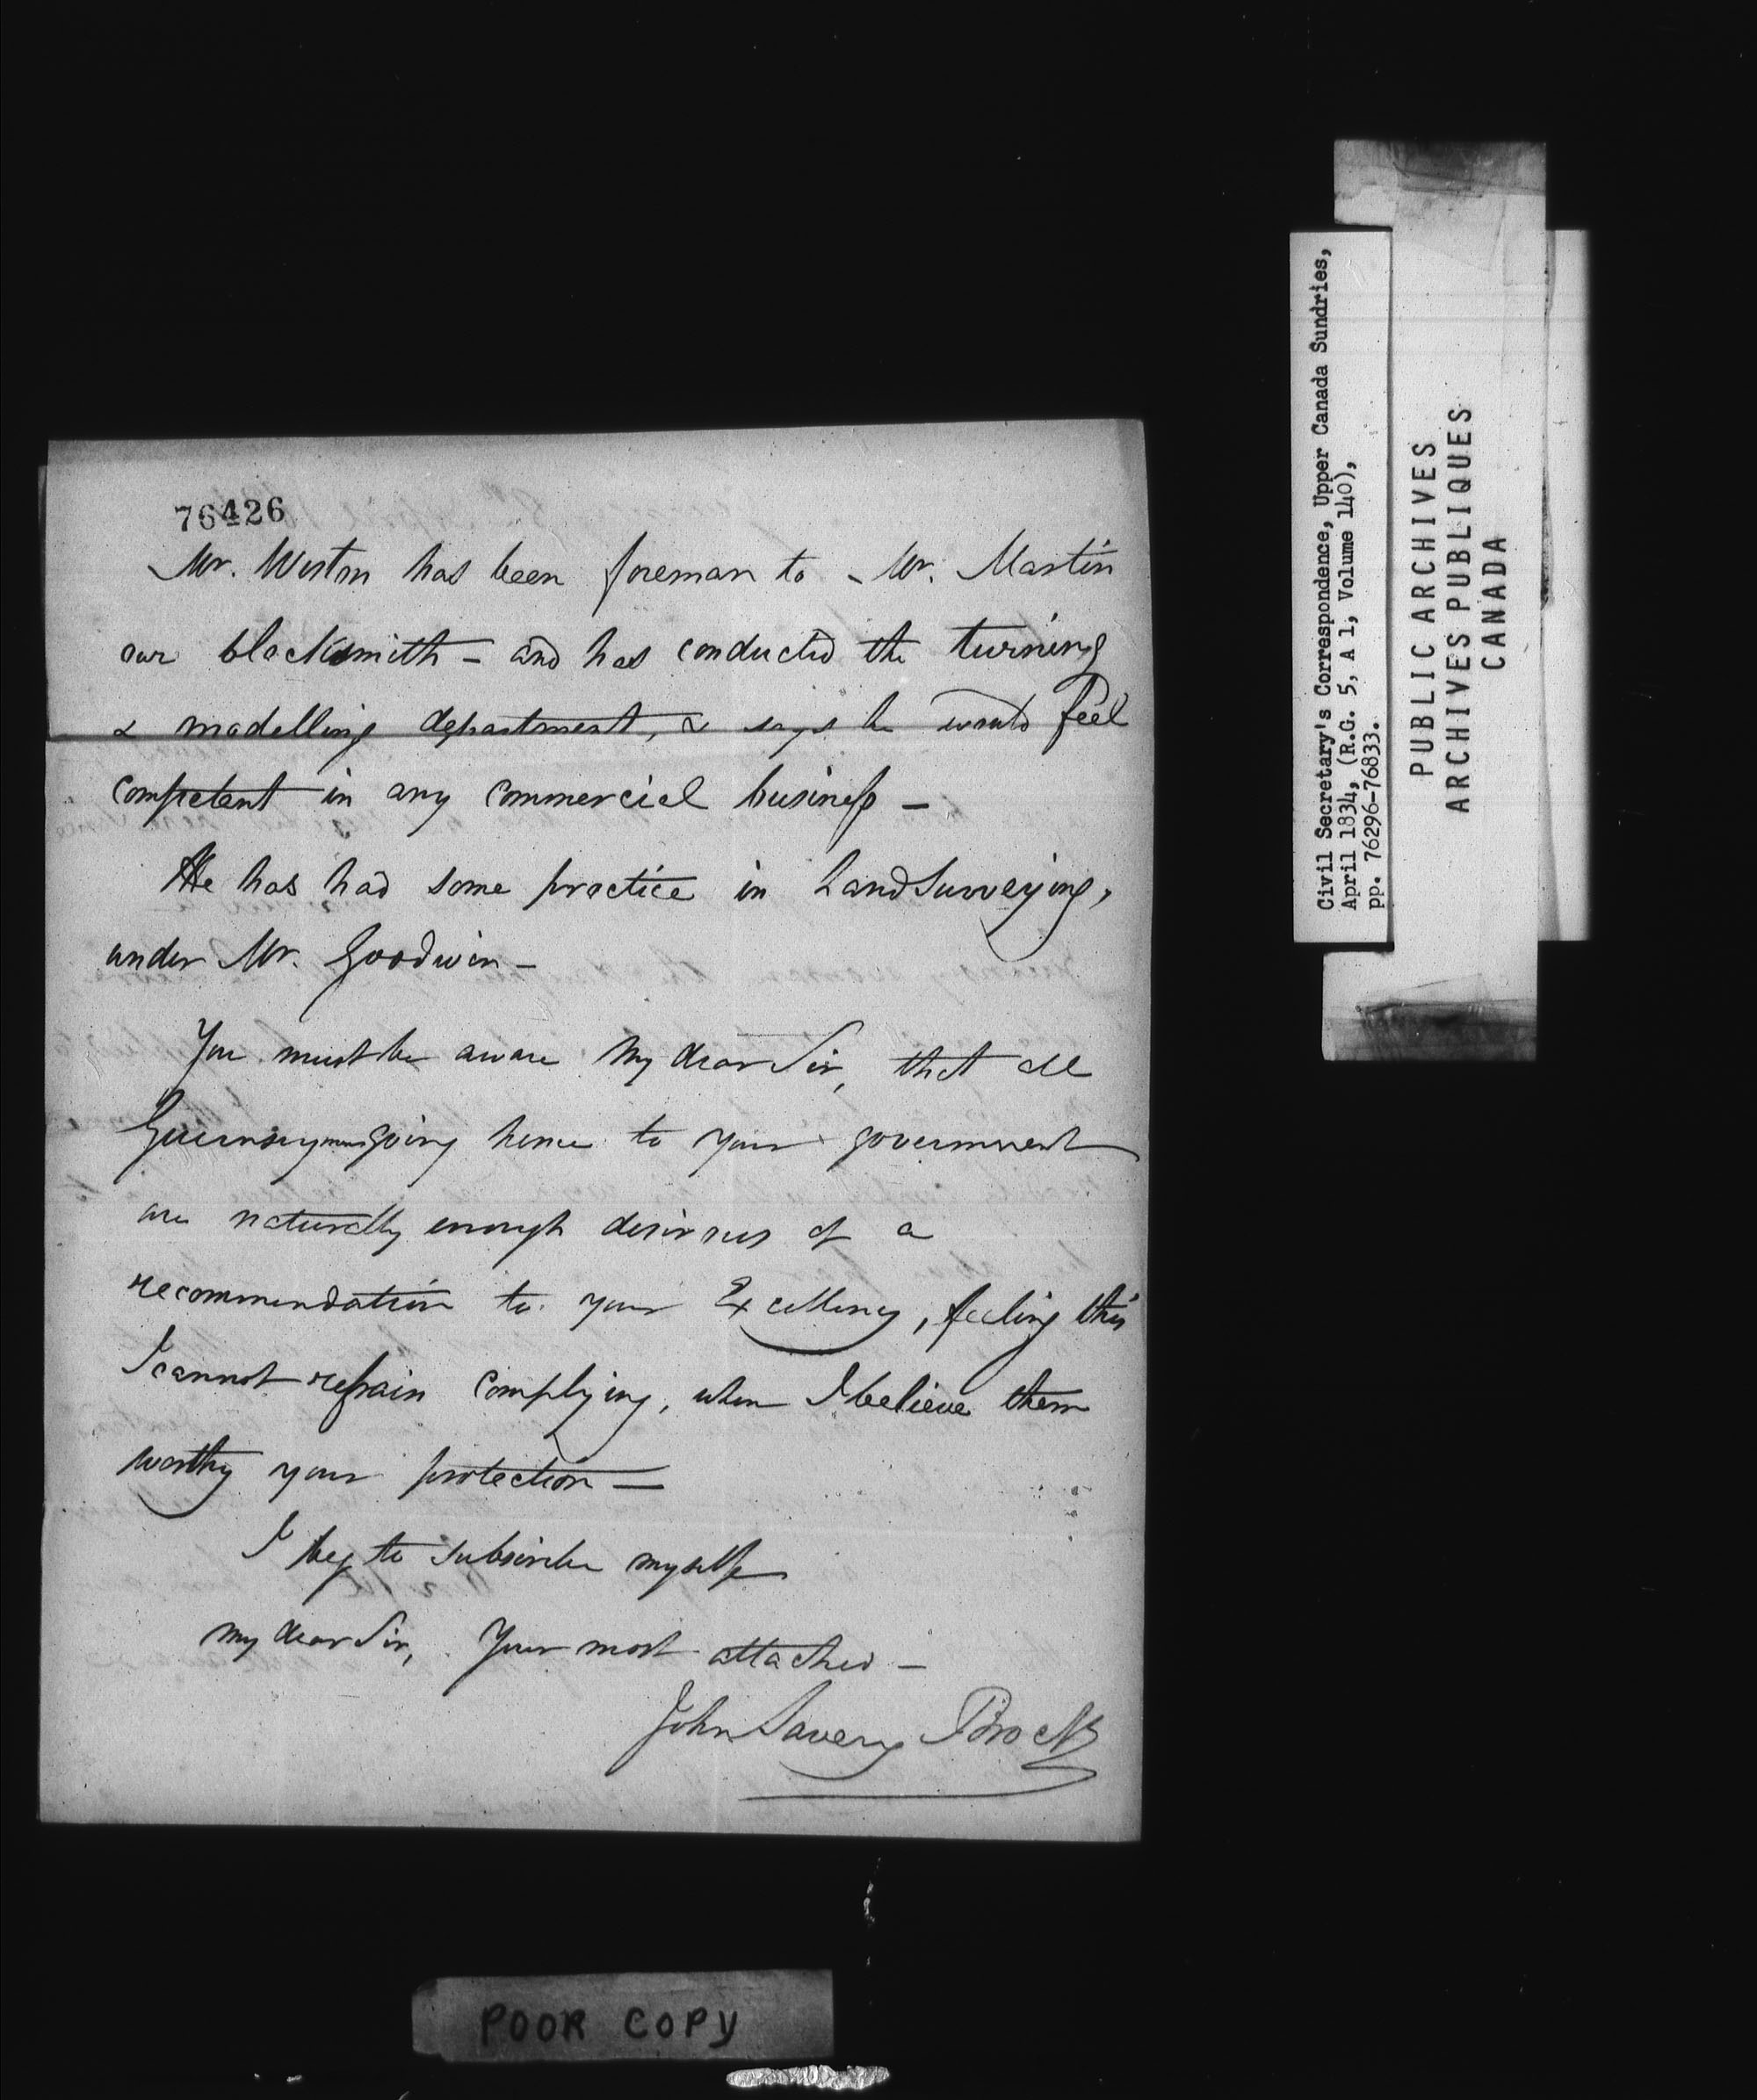 76426
Mr. Weston has been foreman to Mr. Martin
our blacksmith - and has conducted the turning
& modelling department, & says he would feel
competent in any commercial business -
He has had some practice in Land Surveying,
under Mr. Goodwin -
You must be aware my dear Sir, that all
Guernseymen going hence to your government
are naturally enough desirous of a
recommendation to your Excellency, feeling this
I cannot refrain complying, when I believe them
worthy your protection -
I beg to subscribe myself
my dear Sir, Your most attached -
John Savery Brock
Civil Secretary's Correspondence, Upper Canada Sundries,
April 1834, (R.G. 5, A 1, Volume 140),
pp. 76296-76833.
PUBLIC ARCHIVES
ARCHIVES PUBLIQUES
CANADA
POOR COPY